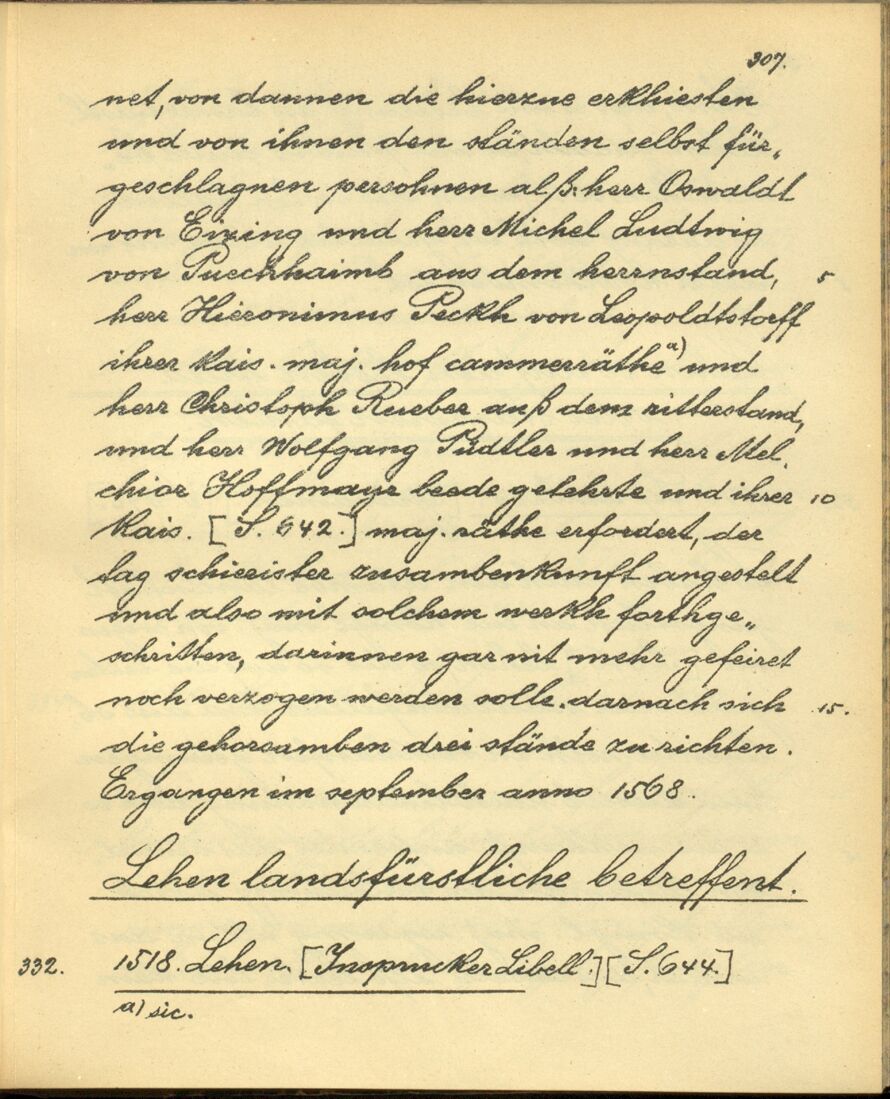 307.
net, von dannen die hierzue erkhiesten
und von ihnen den ständen selbst für„
geschlagnen persohnen alß: herr Oswaldt
von Eizing und herr Michel Ludtwig
von Puechhaimb aus dem herrnstand, 5
herr Hieronimus Peckh von Leopoldtstorff
ihrer kais. maj. hof cammerräthe a) und
herr Christoph Rueber auß dem ritterstand,
und herr Wolfgang Püdtler und herr Mel„
chior Hoffmayr beede gelehrte und ihrer 10
kais. [S. 642.] maj. räthe erfordert, der
tag schieister zusambenkunft angestelt
und also mit solchem werkh forthge„
schritten, darinnen gar nit mehr gefeiret
noch verzogen werden solle. darnach sich 15.
die gehorsamben drei stände zu richten.
Ergangen im september anno 1568.
Lehen landsfürstliche betreffent.
332. 1518. Lehen. [Insprucker Libell.] [S. 644.]
a) sic.